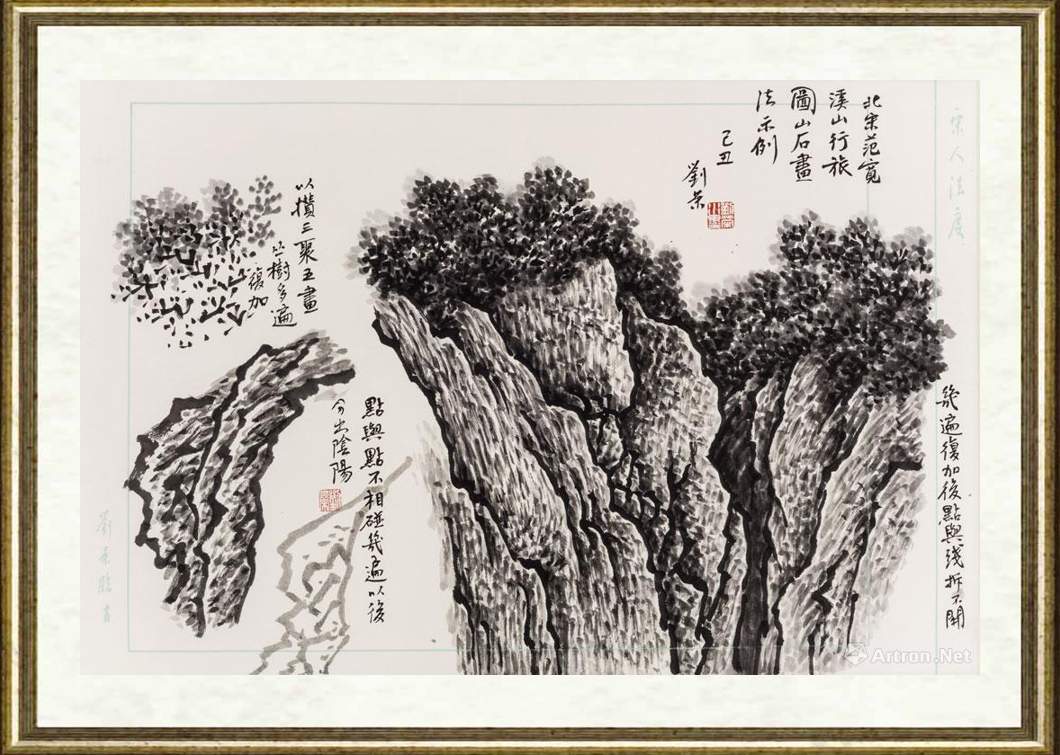 北宋范寬
溪山行旅
圖山石畫
法示例
己丑
劉榮
宋人法度
以攢三聚五畫
此樹多遍
復加
點與點不相碰幾遍以後
分出陰陽
幾遍復加後點與线拆不開
Artron.Net